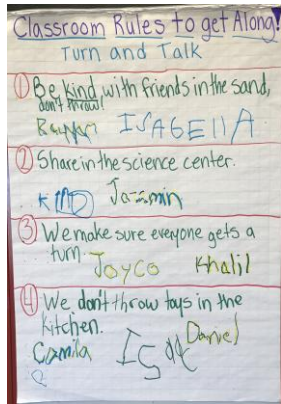 Classroom Rules to get Along!
Turn and Talk
① Be kind with friends in the sand,
don't throw!
ISABEllA
② Share in the science center.
Jazmin
③ We make sure everyone gets a
turn.
JOyCo Khalil
④ We don't throw toys in the
kitchen.
Daniel
Camila